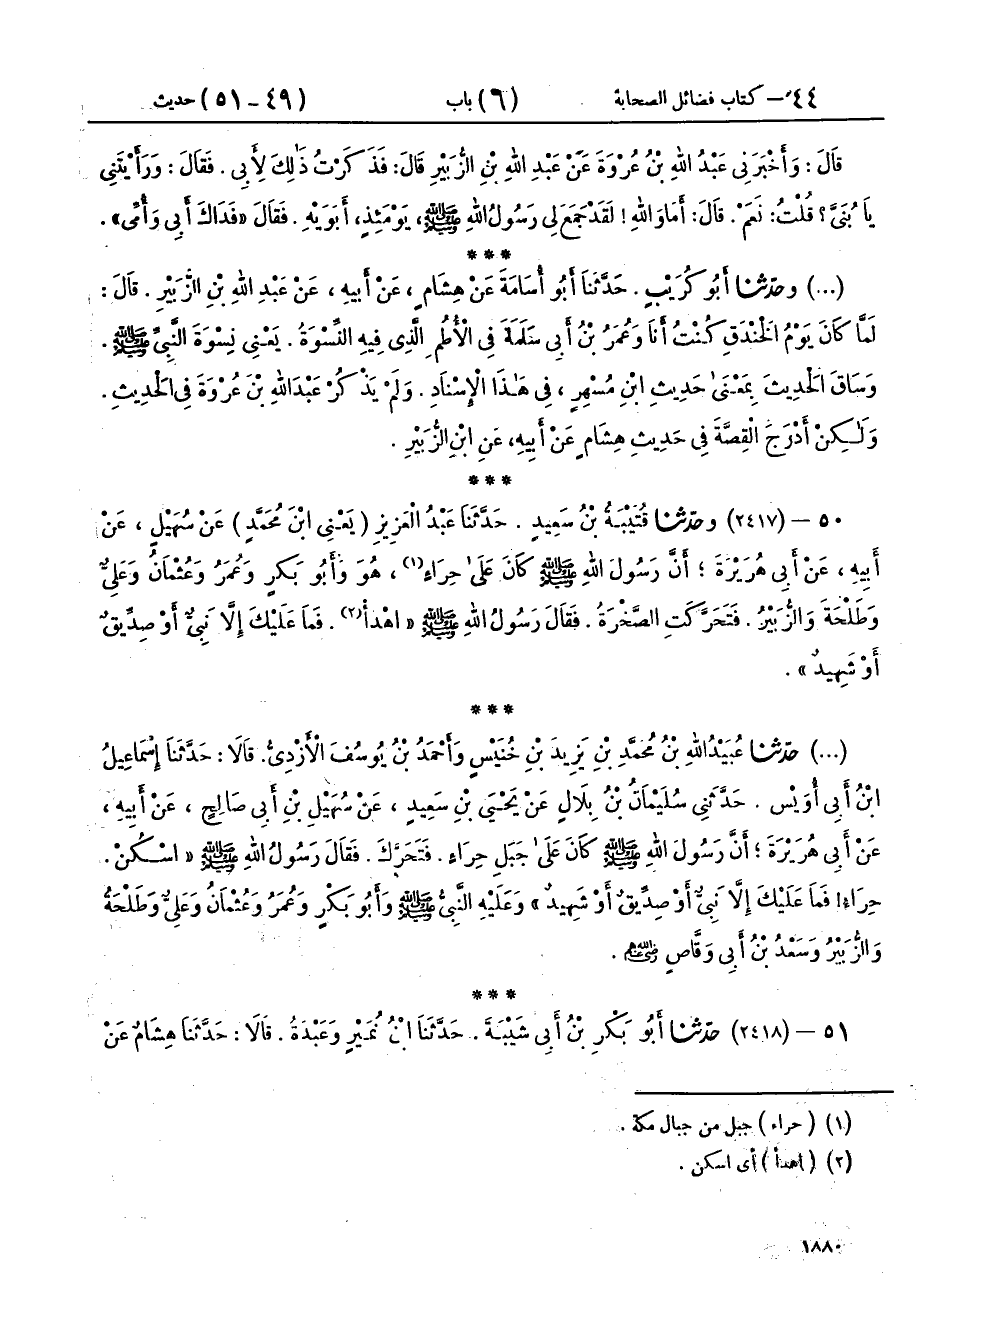 ٤٤ – كتاب فضائل الصحابة (٦) باب (٤٩ – ٥١) حديث
قَالَ : وَأَخْبَرَنِى عَبْدُ اللهِ بْنُ عُرْوَةَ عَنْ عَبْدِ اللهِ بْنِ الزُّبَيْرِ قَالَ: فَذَكَرْتُ ذَٰلِكَ لِأَبِى . فَقَالَ : وَرَأَيْتَنِى
يَا بُنَىَّ ؟ قُلْتُ : نَعَمْ . قَالَ : أَمَا وَاللهِ ! لَقَدْ جَمَعَ لِى رَسُولُ اللهِ ﷺ، يَوْمَئِذٍ، أَبَوَيْهِ . فَقَالَ « فَدَاكَ أَبِى وَأُمِّى » .
* * *
(...) وحَدَّثَنَا أَبُو كُرَيْبٍ . حَدَّثَنَا أَبُو أُسَامَةَ عَنْ هِشَامٍ ، عَنْ أَبِيهِ ، عَنْ عَبْدِ اللهِ بْنِ الزُّبَيْرِ . قَالَ :
لَمَّا كَانَ يَوْمُ الْخَنْدَقِ كُنْتُ أَنَا وَعُمَرُ بْنُ أَبِى سَلَمَةَ فِى الْأُطُمِ الَّذِى فِيهِ النِّسْوَةُ . يَعْنِى نِسْوَةَ النَّبِىِّ ﷺ .
وَسَاقَ الْحَدِيثَ بِمَعْنَىٰ حَدِيثِ ابْنِ مُسْهِرٍ ، فِى هَٰذَا الْإِسْنَادِ . وَلَمْ يَذْكُرْ عَبْدَ اللهِ بْنَ عُرْوَةَ فِى الْحَدِيثِ .
وَلَٰكِنْ أَدْرَجَ الْقِصَّةَ فِى حَدِيثِ هِشَامٍ عَنْ أَبِيهِ، عَنِ ابْنِ الزُّبَيْرِ .
* * *
٥٠ – (٢٤١٧) وحَدَّثَنَا قُتَيْبَةُ بْنُ سَعِيدٍ . حَدَّثَنَا عَبْدُ الْعَزِيزِ ( يَعْنِى ابْنَ مُحَمَّدٍ ) عَنْ سُهَيْلٍ ، عَنْ
أَبِيهِ ، عَنْ أَبِى هُرَيْرَةَ ؛ أَنَّ رَسُولَ اللهِ ﷺ كَانَ عَلَىٰ حِرَاءٍ(١) ، هُوَ وَأَبُو بَكْرٍ وَعُمَرُ وَعُثْمَانُ وَعَلِىٌّ
وَطَلْحَةُ وَالزُّبَيْرُ . فَتَحَرَّكَتِ الصَّخْرَةُ . فَقَالَ رَسُولُ اللهِ ﷺ « اهْدَأْ(٢) . فَمَا عَلَيْكَ إِلَّا نَبِىٌّ أَوْ صِدِّيقٌ
أَوْ شَهِيدٌ » .
* * *
(...) حَدَّثَنَا عُبَيْدُ اللهِ بْنُ مُحَمَّدِ بْنِ يَزِيدَ بْنِ خُنَيْسٍ وَأَحْمَدُ بْنُ يُوسُفَ الْأَزْدِىُّ. قَالَا : حَدَّثَنَا إِسْمَاعِيلُ
ابْنُ أَبِى أُوَيْسٍ . حَدَّثَنِى سُلَيْمَانُ بْنُ بِلَالٍ عَنْ يَحْيَىٰ بْنِ سَعِيدٍ ، عَنْ سُهَيْلِ بْنِ أَبِى صَالِحٍ ، عَنْ أَبِيهِ ،
عَنْ أَبِى هُرَيْرَةَ ؛ أَنَّ رَسُولَ اللهِ ﷺ كَانَ عَلَىٰ جَبَلِ حِرَاءٍ . فَتَحَرَّكَ . فَقَالَ رَسُولُ اللهِ ﷺ « اسْكُنْ .
حِرَاءُ! فَمَا عَلَيْكَ إِلَّا نَبِىٌّ أَوْ صِدِّيقٌ أَوْ شَهِيدٌ » وَعَلَيْهِ النَّبِىُّ ﷺ وَأَبُو بَكْرٍ وَعُمَرُ وَعُثْمَانُ وَعَلِىٌّ وَطَلْحَةُ
وَالزُّبَيْرُ وَسَعْدُ بْنُ أَبِى وَقَّاصٍ رضي الله عنهم .
* * *
٥١ – (٢٤١٨) حَدَّثَنَا أَبُو بَكْرِ بْنُ أَبِى شَيْبَةَ . حَدَّثَنَا ابْنُ نُمَيْرٍ وَعَبْدَةُ . قَالَا : حَدَّثَنَا هِشَامٌ عَنْ
(١) ( حراء ) جبل من جبال مكة .
(٢) ( اهدأ ) أى اسكن .
١٨٨٠